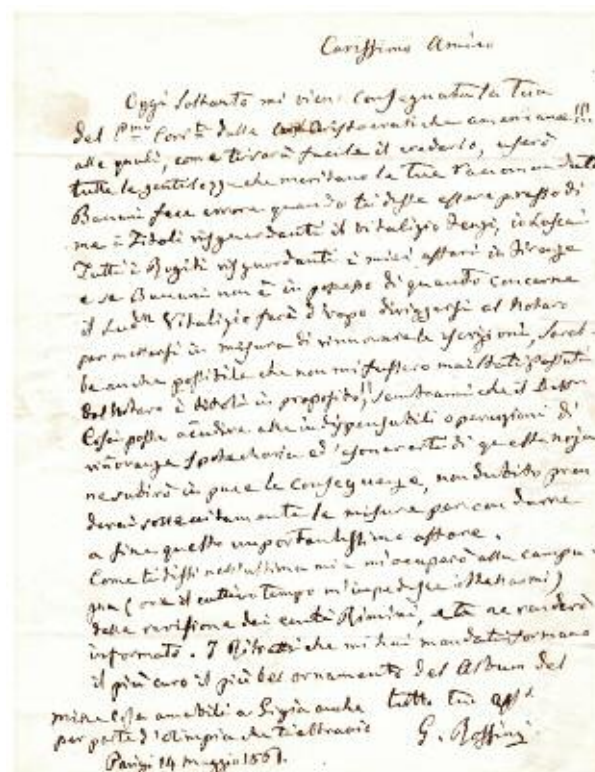 Carissimo Amico
Oggi soltanto mi vien consegnata la tua
del Pmo Corrte dalle Aristocratiche americane!!!
alle quali, come ti sarà facile il crederlo, userò
tutte le gentilezze che meritano le tue raccomandate
fece errore quando ti disse essere presso di
me i Titoli risguardanti il vitalizio io lasciai
Tutti i risguardanti i miei affari in Firenze
e se non è in possesso di quanto concerne
il Vitalizio farà d'uopo diriggersi al Notaro
per mettersi in misura di rinnovare le iscrizioni, sareb-
be anche possibile che non mi fossero mai stati passati
dal Notaro i titoli in proposito!! sembrami che il
possa accudire alle indispensabili operazioni di
ed esonerarti di questa noja
ne subirà in pace le conseguenze, non dubito pren
derai sollecitamente le misure per condurre
a fine questo importantissimo affare.
Come ti dissi nell'ultima mia m'occuperò alla campa
gna (ove il cattivo tempo m'impedisce)
della revisione dei conti Rimini, e te ne renderò
informato. I Ritratti che mi hai mandati formano
il più caro il più bel ornamento del Album del
tutto tuo affo
mille cose amabili a anche
per parte d'Olimpia che
G. Rossini
Parigi 14 Maggio 1861.